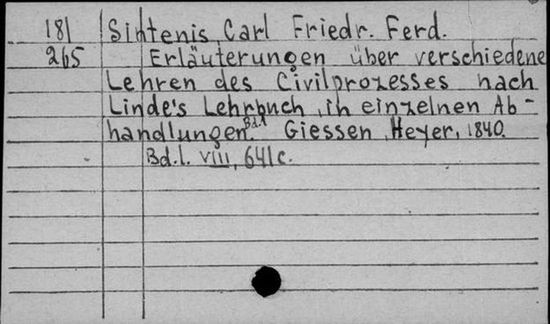 181 Sintenis, Carl Friedr. Ferd.
265 Erläuterungen über verschiedene
Lehren des Civilprozesses nach
Linde's Lehrbuch, in einzelnen Ab-
handlungen. Bd.1 Giessen, Heyer, 1840.
Bd.1. VIII, 641c.